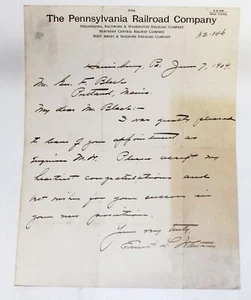 The Pennsylvania Railroad Company
Philadelphia, Baltimore & Washington Railroad Company
Northern Central Railway Company
West Jersey & Seashore Railroad Company
A2-146
Harrisburg, Pa. June 7, 1909
Mr. Geo. F. Black
Portland, Maine
My dear Mr. Black:-
I was greatly pleased
to learn of your appointment as
Engineer M.W. Please accept my
heartiest congratulations and
best wishes for your success in
your new position.
Yours very truly,